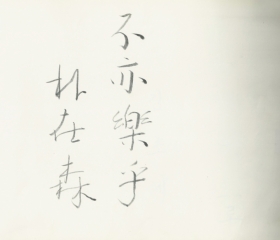 不亦樂乎
朴在森